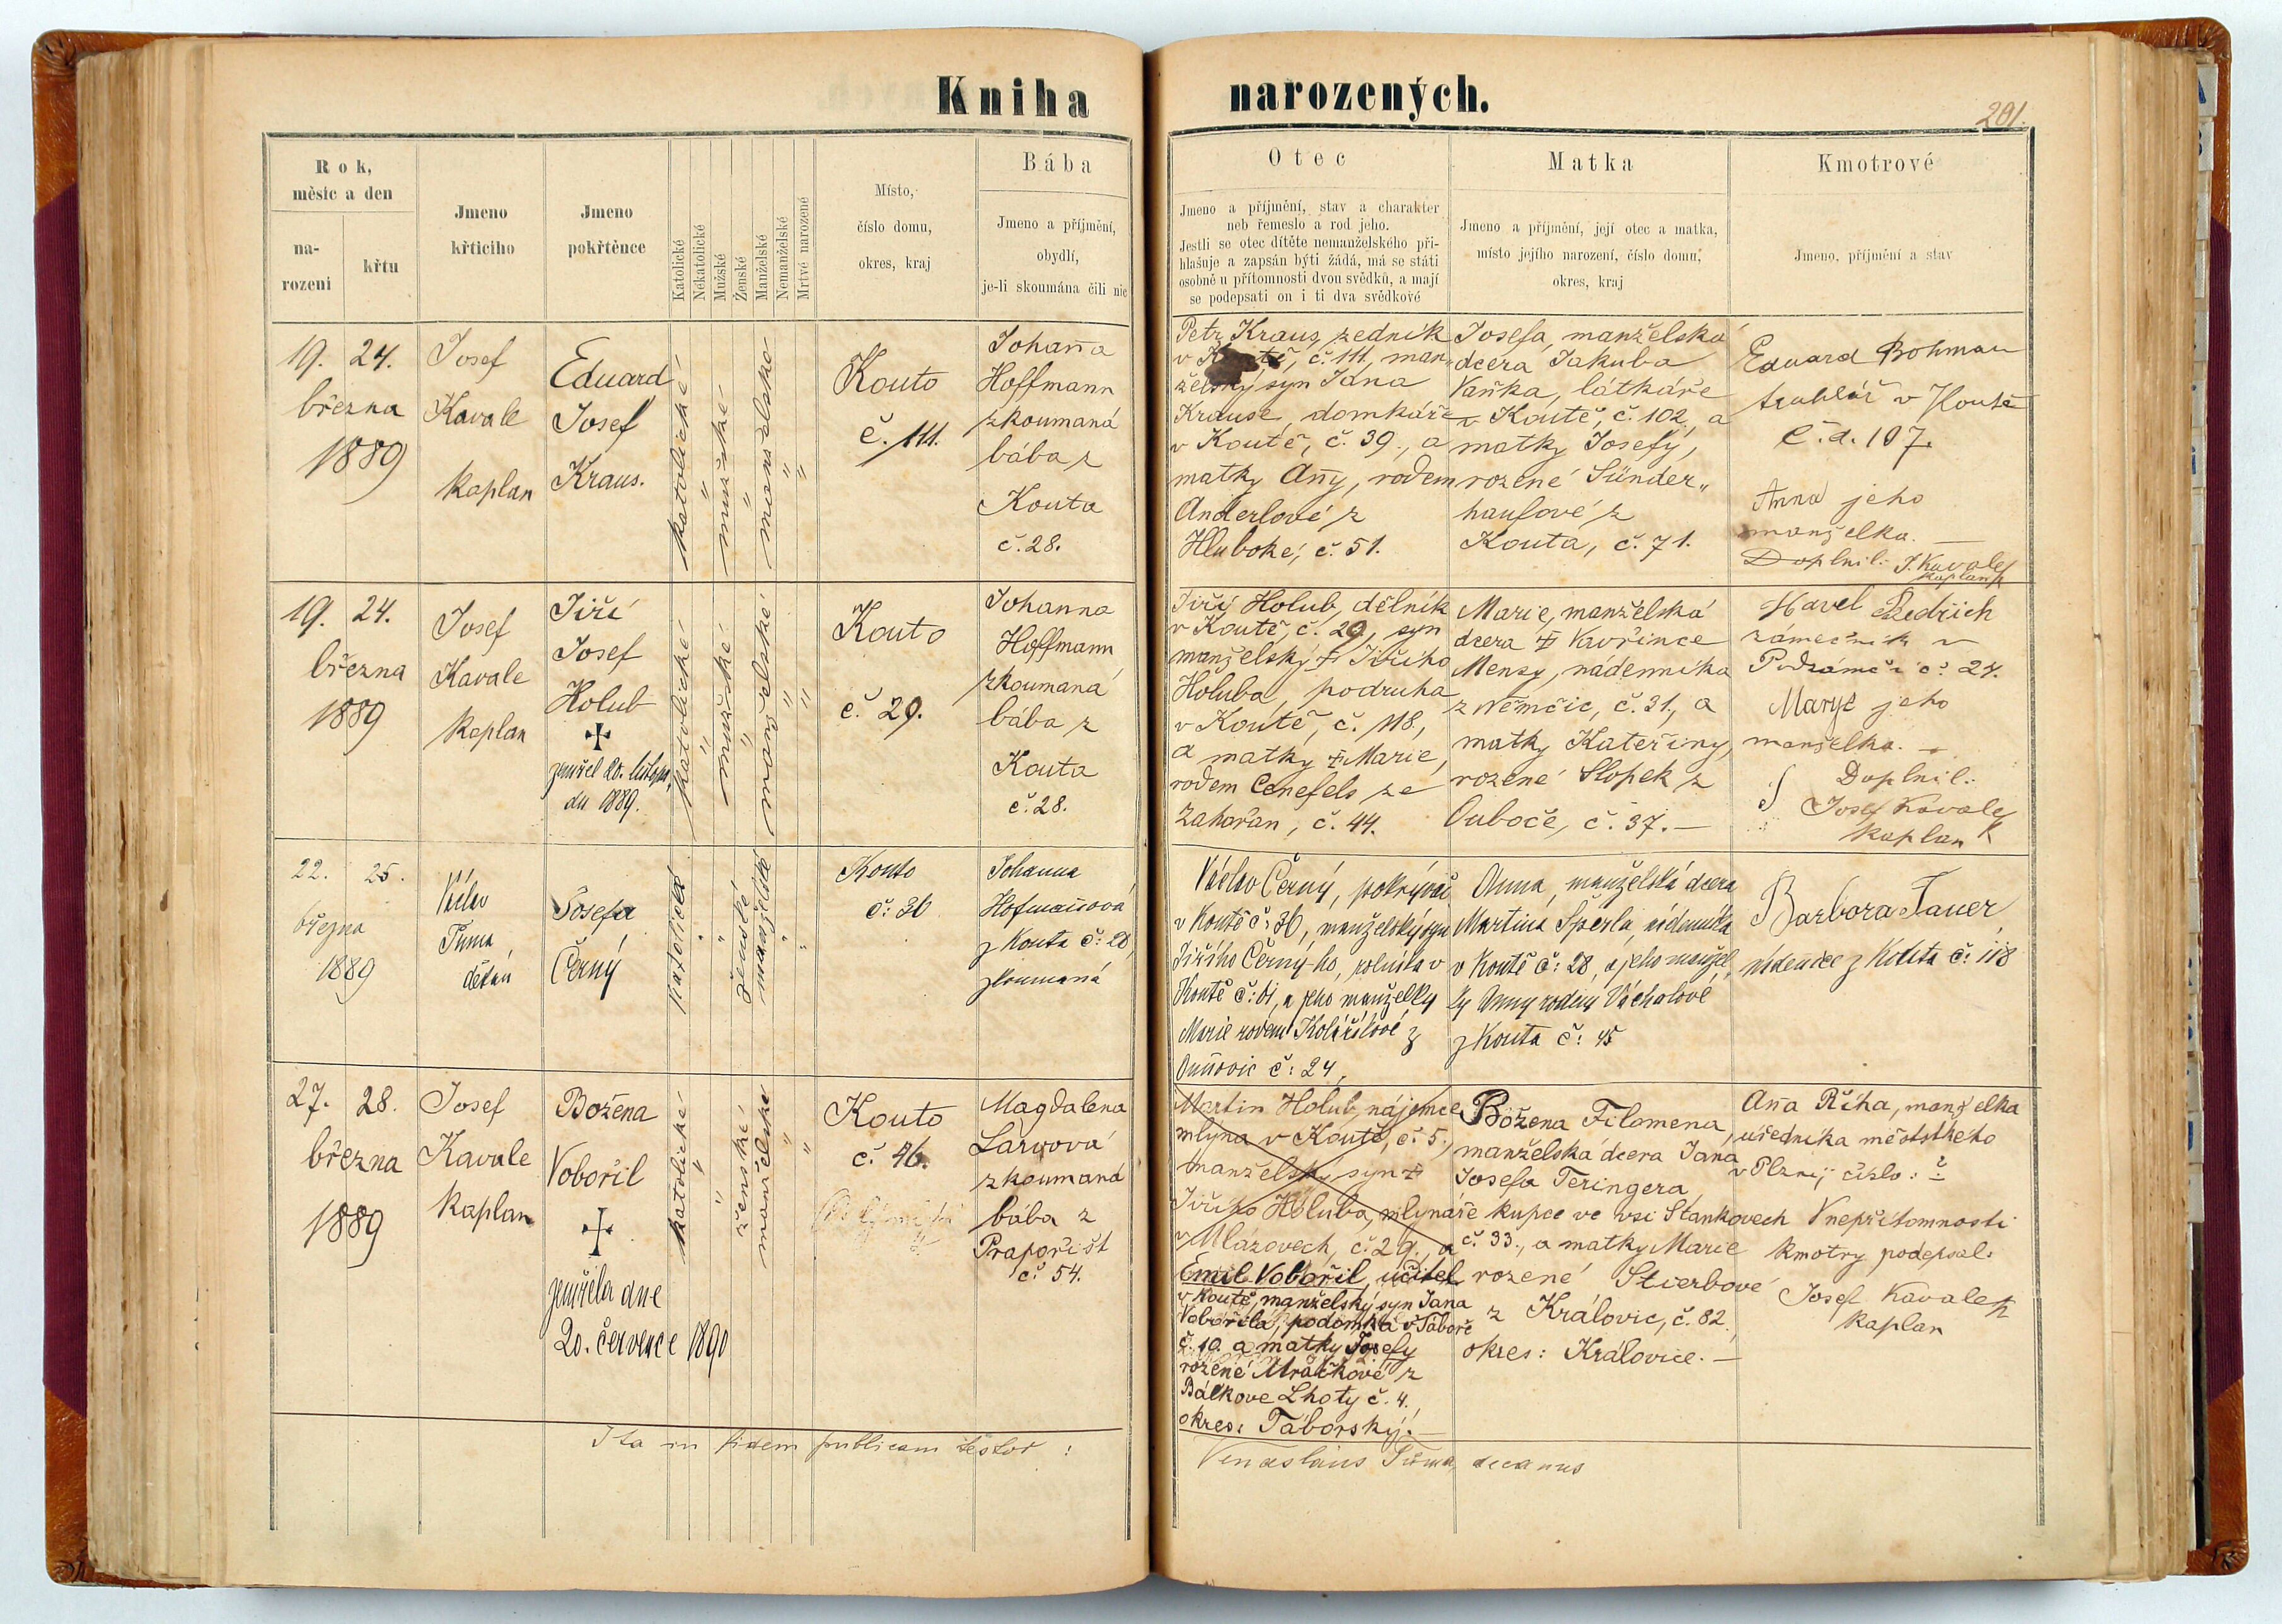 Kniha
narozených.
201.
Rok,
měsíc a den
na-
rození
křtu
Jmeno
křticího
Jmeno
pokřtěnce
Katolické
Nekatolické
Mužské
Ženské
Manželské
Nemanželské
Mrtvé narozené
Místo,
číslo domu,
okres, kraj
Bába
Jmeno a příjmění,
obydlí,
je-li skoumána čili nic
Otec
Jmeno a příjmění, stav a charakter
neb řemeslo a rod jeho.
Jestli se otec dítěte nemanželského při-
hlašuje a zapsán býti žádá, má se státi
osobně u přítomnosti dvou svědků, a mají
se podepsati on i ti dva svědkové
Matka
Jmeno a příjmění, její otec a matka,
místo jejího narození, číslo domu,
okres, kraj
Kmotrové
Jmeno, příjmění a stav
19. 24.
března
1889
Josef
Kavale
kaplan
Eduard
Josef
Kraus.
katolické
"
mužské
"
manželské
"
"
Kouto
č. 111.
Johana
Hoffmann
zkoumaná
bába z
Kouta
č. 28.
Petr Kraus, zedník
v č. 111, man„
želský syn Jána
Krause, domkáře
v Koutě, č. 39., a
matky Any, rodem
Anderlové z
Hluboké, č. 51.
Josefa, manželská
dcera Jakuba
Vaňka, látkáře
v Koutě, č. 102, a
matky Josefy,
rozené Sünder„
haufové z
Kouta, č. 71.
Eduard Bohman
truhlář v Koutě
č. d. 107.
Anna jeho
manželka.
Doplnil: J. Kavale
kaplan
19. 24.
března
1889
Josef
Kavale
kaplan
Jiří
Josef
Holub
zemřel 20. listopa„
du 1889.
katolické
"
mužské
"
manželské
"
"
Kouto
č. 29.
Johanna
Hoffmann
zkoumaná
bába z
Kouta
č. 28.
Jiří Holub, dělník
v Koutě, č. 29, syn
manželský Jiřího
Holuba, podruha
v Koutě, č. 118,
a matky Marie,
rodem Cenefels ze
Zahořan, č. 44.
Marie, manželská
dcera Vavřince
Mensy, nádenníka
z Němčic, č. 31., a
matky Kateřiny,
rozené Slopek z
Ouboče, č. 37.
Havel Bedřich
zámečník v
Podzámčí č. 24.
Marye jeho
manželka.
Doplnil:
Josef Kavale
kaplan
22. 25.
března
1889
Václav
Tuma
děkan
Josefa
Černý
katolické
"
ženské
manželské
"
"
Kouto
č: 36
Johanna
Hofmanová
z Kouta č: 28,
zkoumaná
Václav Černý, pokrývač
v Koutě č: 36, manželský syn
Jiřího Černý-ho, rolníka v
Koutě č: 61, a jeho manželky
Marie rodem Kolaříkové z
Ounovic č: 24,
Anna, manželská dcera
Martina Sperla, nádenníka
v Koutě č: 28, a jeho manžel„
ky Anny rodem Váchalové
z Kouta č: 45
Barbora Tauer,
nádenice z Kouta č: 118
27. 28.
března
1889
Josef
Kavale
kaplan
Božena
Vobořil
zemřela dne
20. července 1890
katolické
"
"
ženské
manželské
"
"
Kouto
č. 46.
Magdalena
Lárvová
zkoumaná
bába z
Prapořišt
č. 54.
Martin Holub, nájemce
mlýna v Koutě, č. 5.,
manželský syn
Jiřího Holuba, mlynáře
v Mlázovech, č. 29., a
Emil Vobořil, učitel
v Koutě, manželský syn Jana
Vobořila, podomka v Táboře
č. 10. a matky Josefy
rozené Mráčkové z
Bálkove Lhoty č. 4.,
okres: Táborský.
Božena Filomena,
manželská dcera Jana
Josefa Teringera
kupce ve vsi Stankovech
č. 33., a matky Marie
rozené Stierbové
z Královic, č. 82.,
okres: Královice.
Aña Říha, manželka
úředníka městského
v Plzni, číslo: ?
V nepřítomnosti
kmotry podepsal:
Josef Kavale
kaplan
Ita in fidem publicam testor:
Venceslaus Tuma, decanus